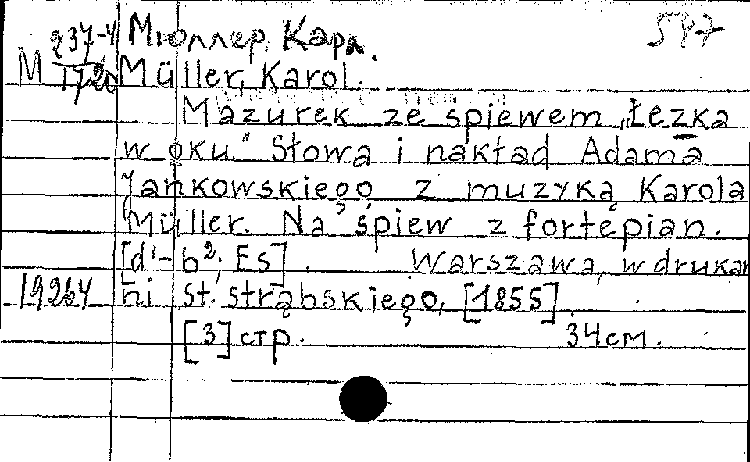 237-4 Мюллер, Карл. 547
М 1720 Müller, Karol.
Mazurek ze śpiewem „Łezka
w oku" Słowa i nakład Adama
Jankowskiego z muzyką Karola
Müller. Na śpiew z fortepian.
[d¹-b²; Es]. Warszawa, w drukar
19264 ni St. Strąbskiego, [1855].
[3] стр. 34 см.